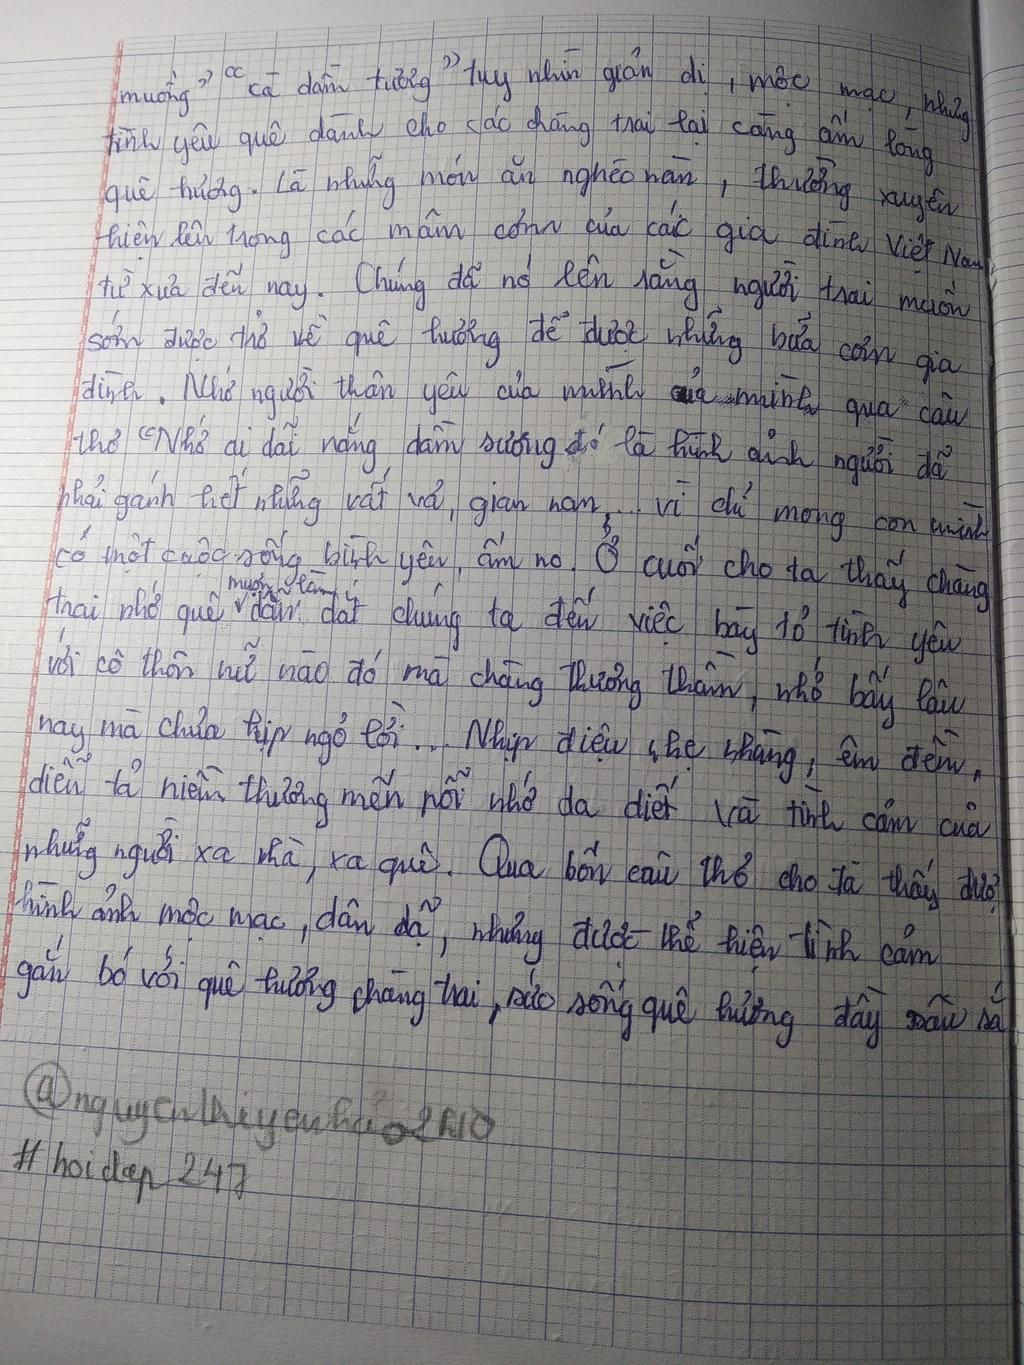 muống" "cà dầm tương" tuy nhìn giản dị, mộc mạc, nhưng
tình yêu quê dành cho các chàng trai lại càng ấm lòng
quê hương. Là những món ăn nghèo nàn, thường xuyên
hiện lên trong các mâm cơm của các gia đình Việt Nam
từ xưa đến nay. Chúng đã nó lên rằng người trai muốn
sớm được thở về quê hương để được những bữa cơm gia
đình. Nhớ người thân yêu của mình của mình qua câu
thơ "Nhớ ai dãi nắng dầm sương đó là hình ảnh người đã
phải gánh hết những vất vả, gian nan,... vì chỉ mong con mình
có một cuộc sống bình yên, ấm no. Ở cuối cho ta thấy chàng
trai nhớ quê dẫn dắt chúng ta đến việc bày tỏ tình yêu
với cô thôn nữ nào đó mà chàng thương thầm, nhớ bấy lâu
nay mà chưa kịp ngỏ lời... Nhịp điệu nhẹ nhàng, êm đềm,
diễn tả niềm thương mến nỗi nhớ da diết và tình cảm của
những người xa nhà, xa quê. Qua bốn câu thơ cho ta thấy đượ
hình ảnh mộc mạc, dân dã, nhưng được thể hiện tình cảm
gắn bó với quê hương chàng trai, sức sống quê hương đầy sâu sắ
#hoidap247